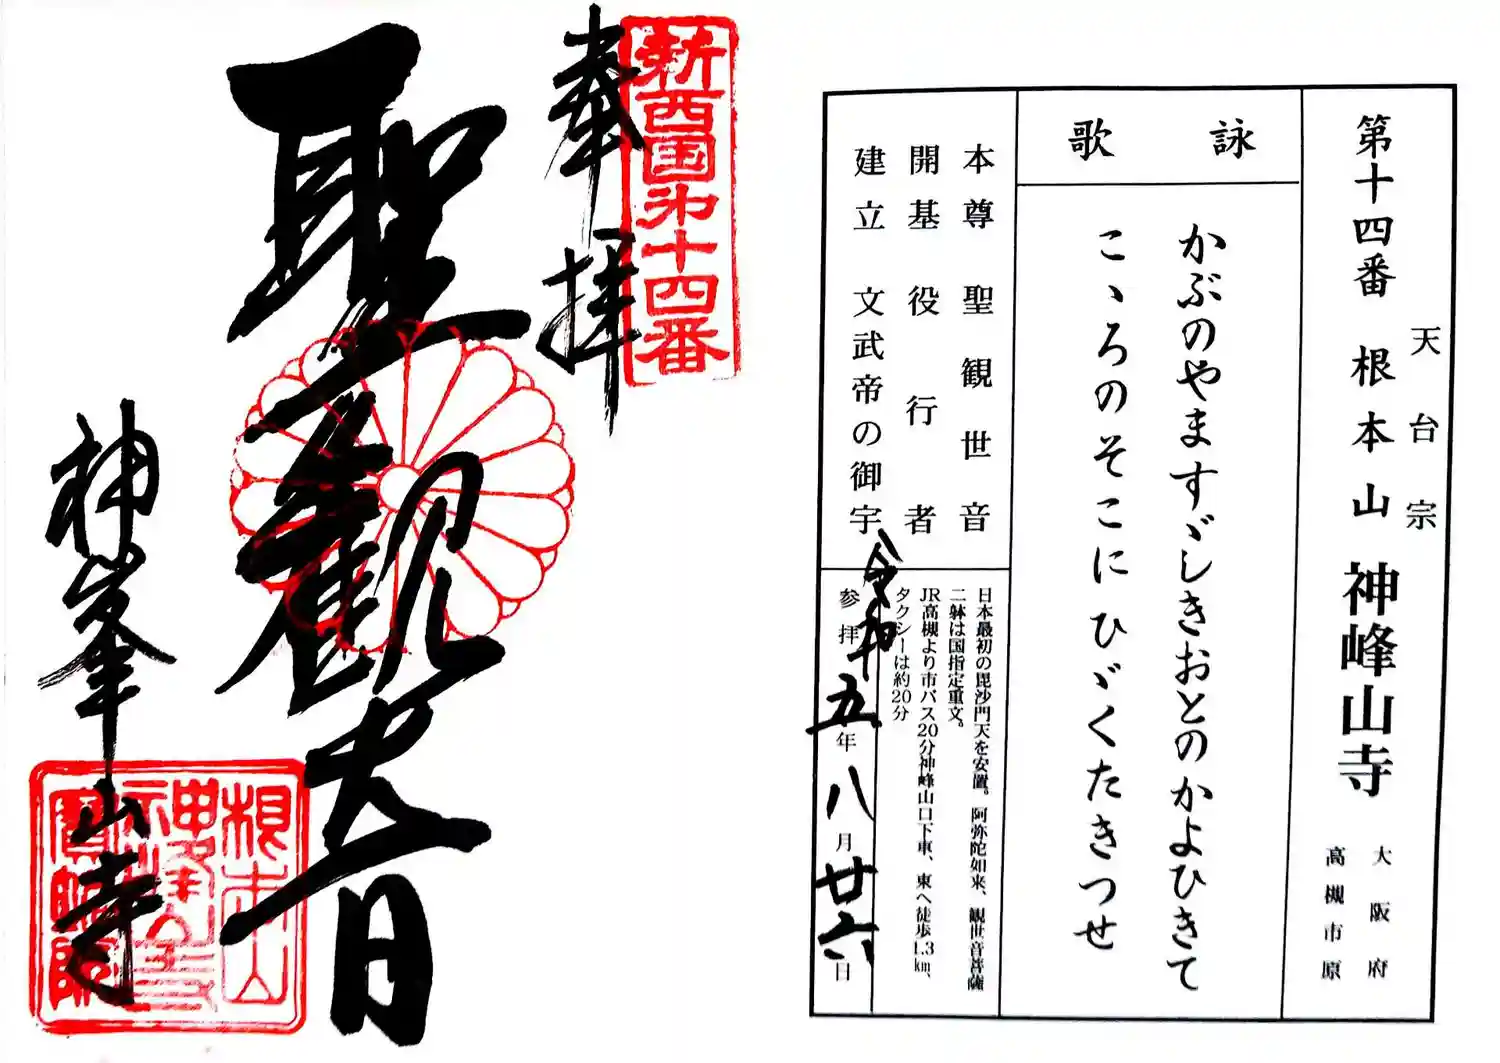 第十四番 根本山 神峰山寺
天台宗
大阪府
高槻市原
詠歌
かぶのやますゞしきおとのかよひきて
こゝろのそこにひゞくたきつせ
本尊 聖観世音
開基 役行者
建立 文武帝の御宇
日本最初の毘沙門天を安置。阿弥陀如来、観世音菩薩
二躰は国指定重文。
JR高槻より市バス20分神峰山口下車、東へ徒歩1.3㎞、
タクシーは約20分
参拝 令和五年八月廿六日
新西国第十四番
奉拝
聖観世音
神峯山寺
根本山
神峰山寺
寶